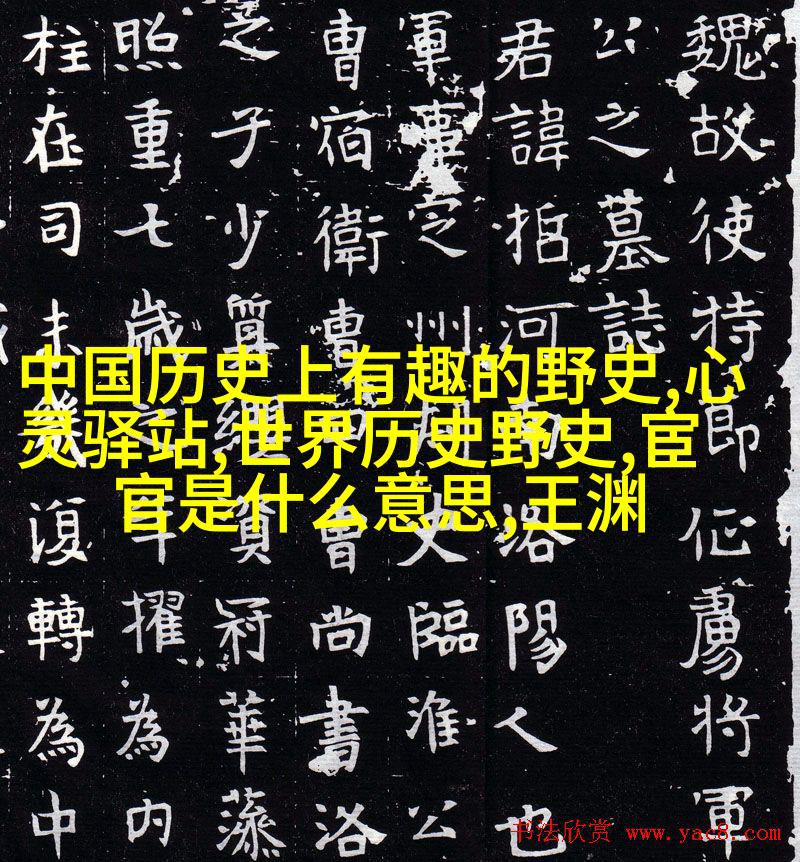 魏故使持節征虜將軍
公之墓誌
君諱河南洛陽人也
軍事定州刺史臨淮公
曹宿衛曹曹尚書洛
子少資冠華藻
照重七歲年擢為內
柱在司未幾復轉為中
中国历史上有趣的野史,心
灵驿站,世界历史野史,宦
官是什么意思,王渊
书法欣赏 www.yac8.com